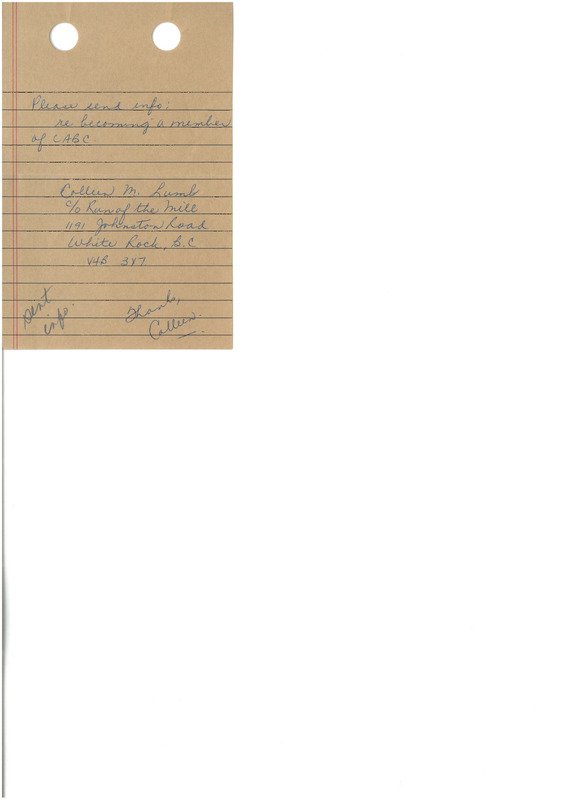 Please send info:
re becoming a member
of CABC
Colleen M. Lumb
c/o Run of the Mill
1191 Johnston Road
White Rock, B.C
V4B 3Y7.
sent
info.
Thanks,
Colleen.